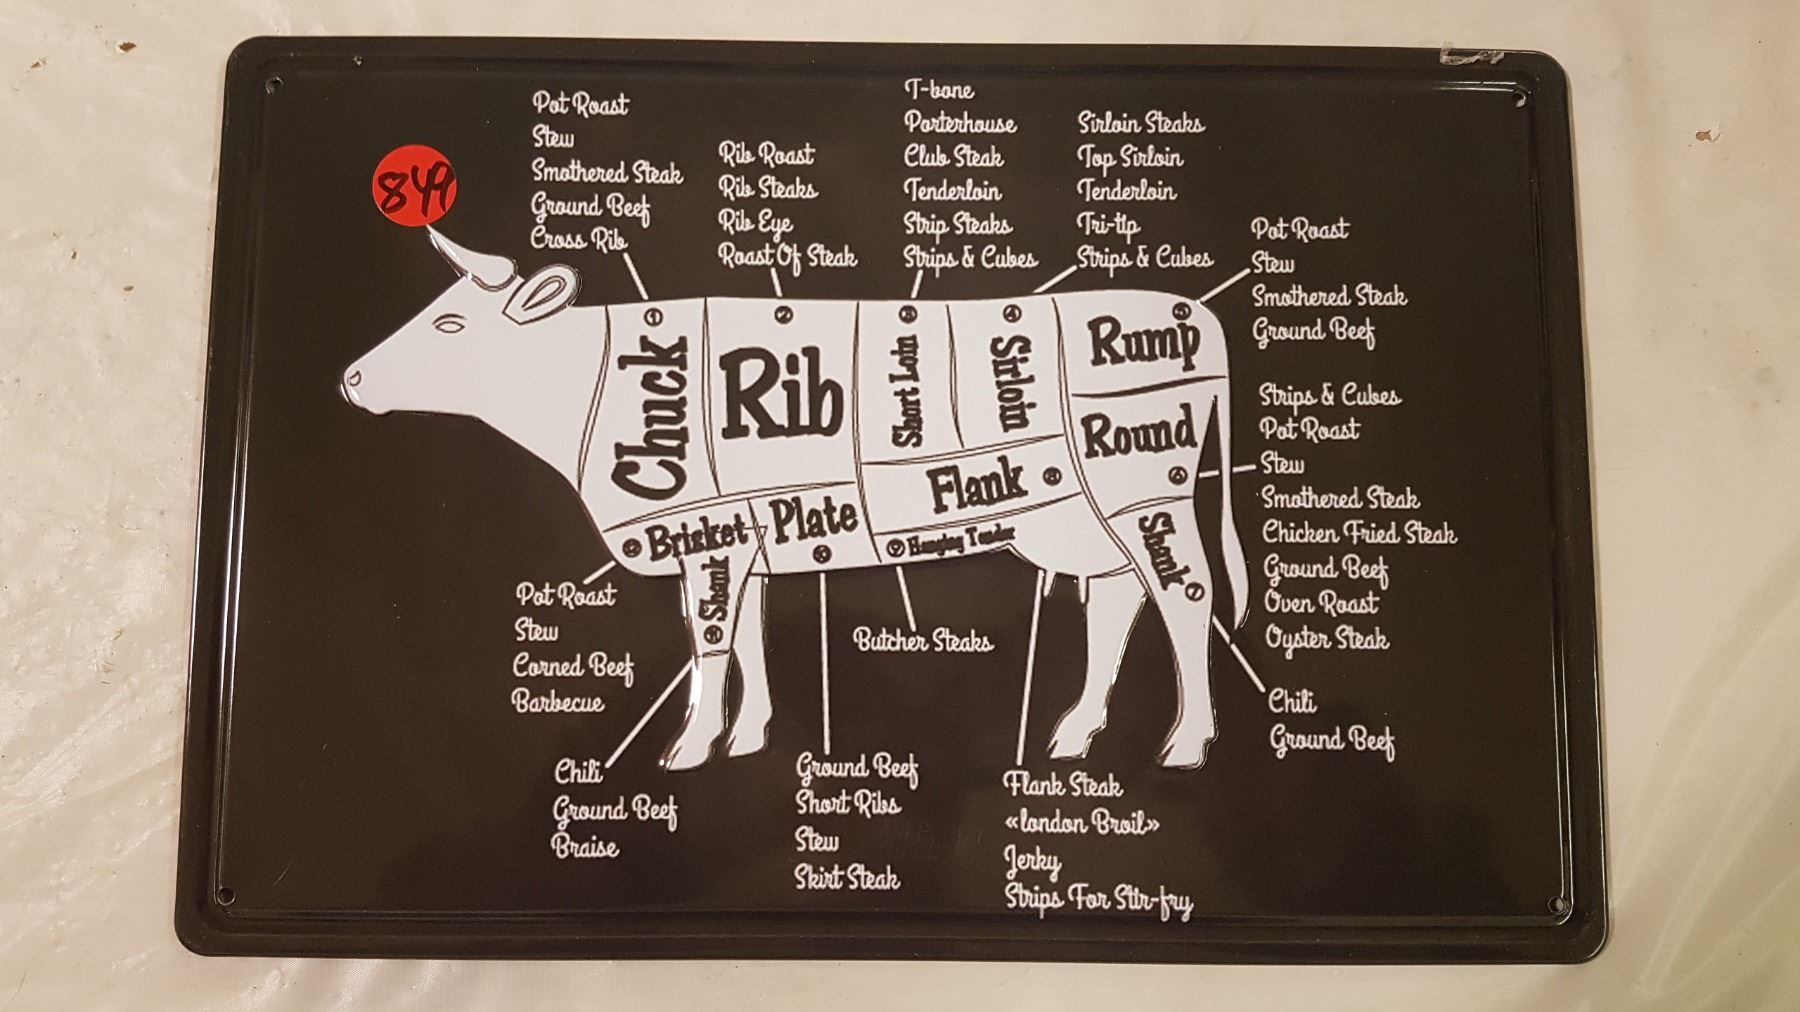 849
Pot Roast
Stew
Smothered Steak
Ground Beef
Cross Rib
Rib Roast
Rib Steaks
Rib Eye
Roast Of Steak
T-bone
Porterhouse
Club Steak
Tenderloin
Strip Steaks
Strips & Cubes
Sirloin Steaks
Top Sirloin
Tenderloin
Tri-tip
Strips & Cubes
Pot Roast
Stew
Smothered Steak
Ground Beef
1
Chuck
2
Rib
3
Short Loin
4
Sirloin
5
Rump
Round
6
Flank
8
Brisket
Plate
9
Hanging Tender
Shank
Shank
7
Strips & Cubes
Pot Roast
Stew
Smothered Steak
Chicken Fried Steak
Ground Beef
Oven Roast
Oyster Steak
Pot Roast
Stew
Corned Beef
Barbecue
Butcher Steaks
Chili
Ground Beef
Chili
Ground Beef
Braise
Ground Beef
Short Ribs
Stew
Skirt Steak
Flank Steak
«london Broil»
Jerky
Strips For Stir-fry